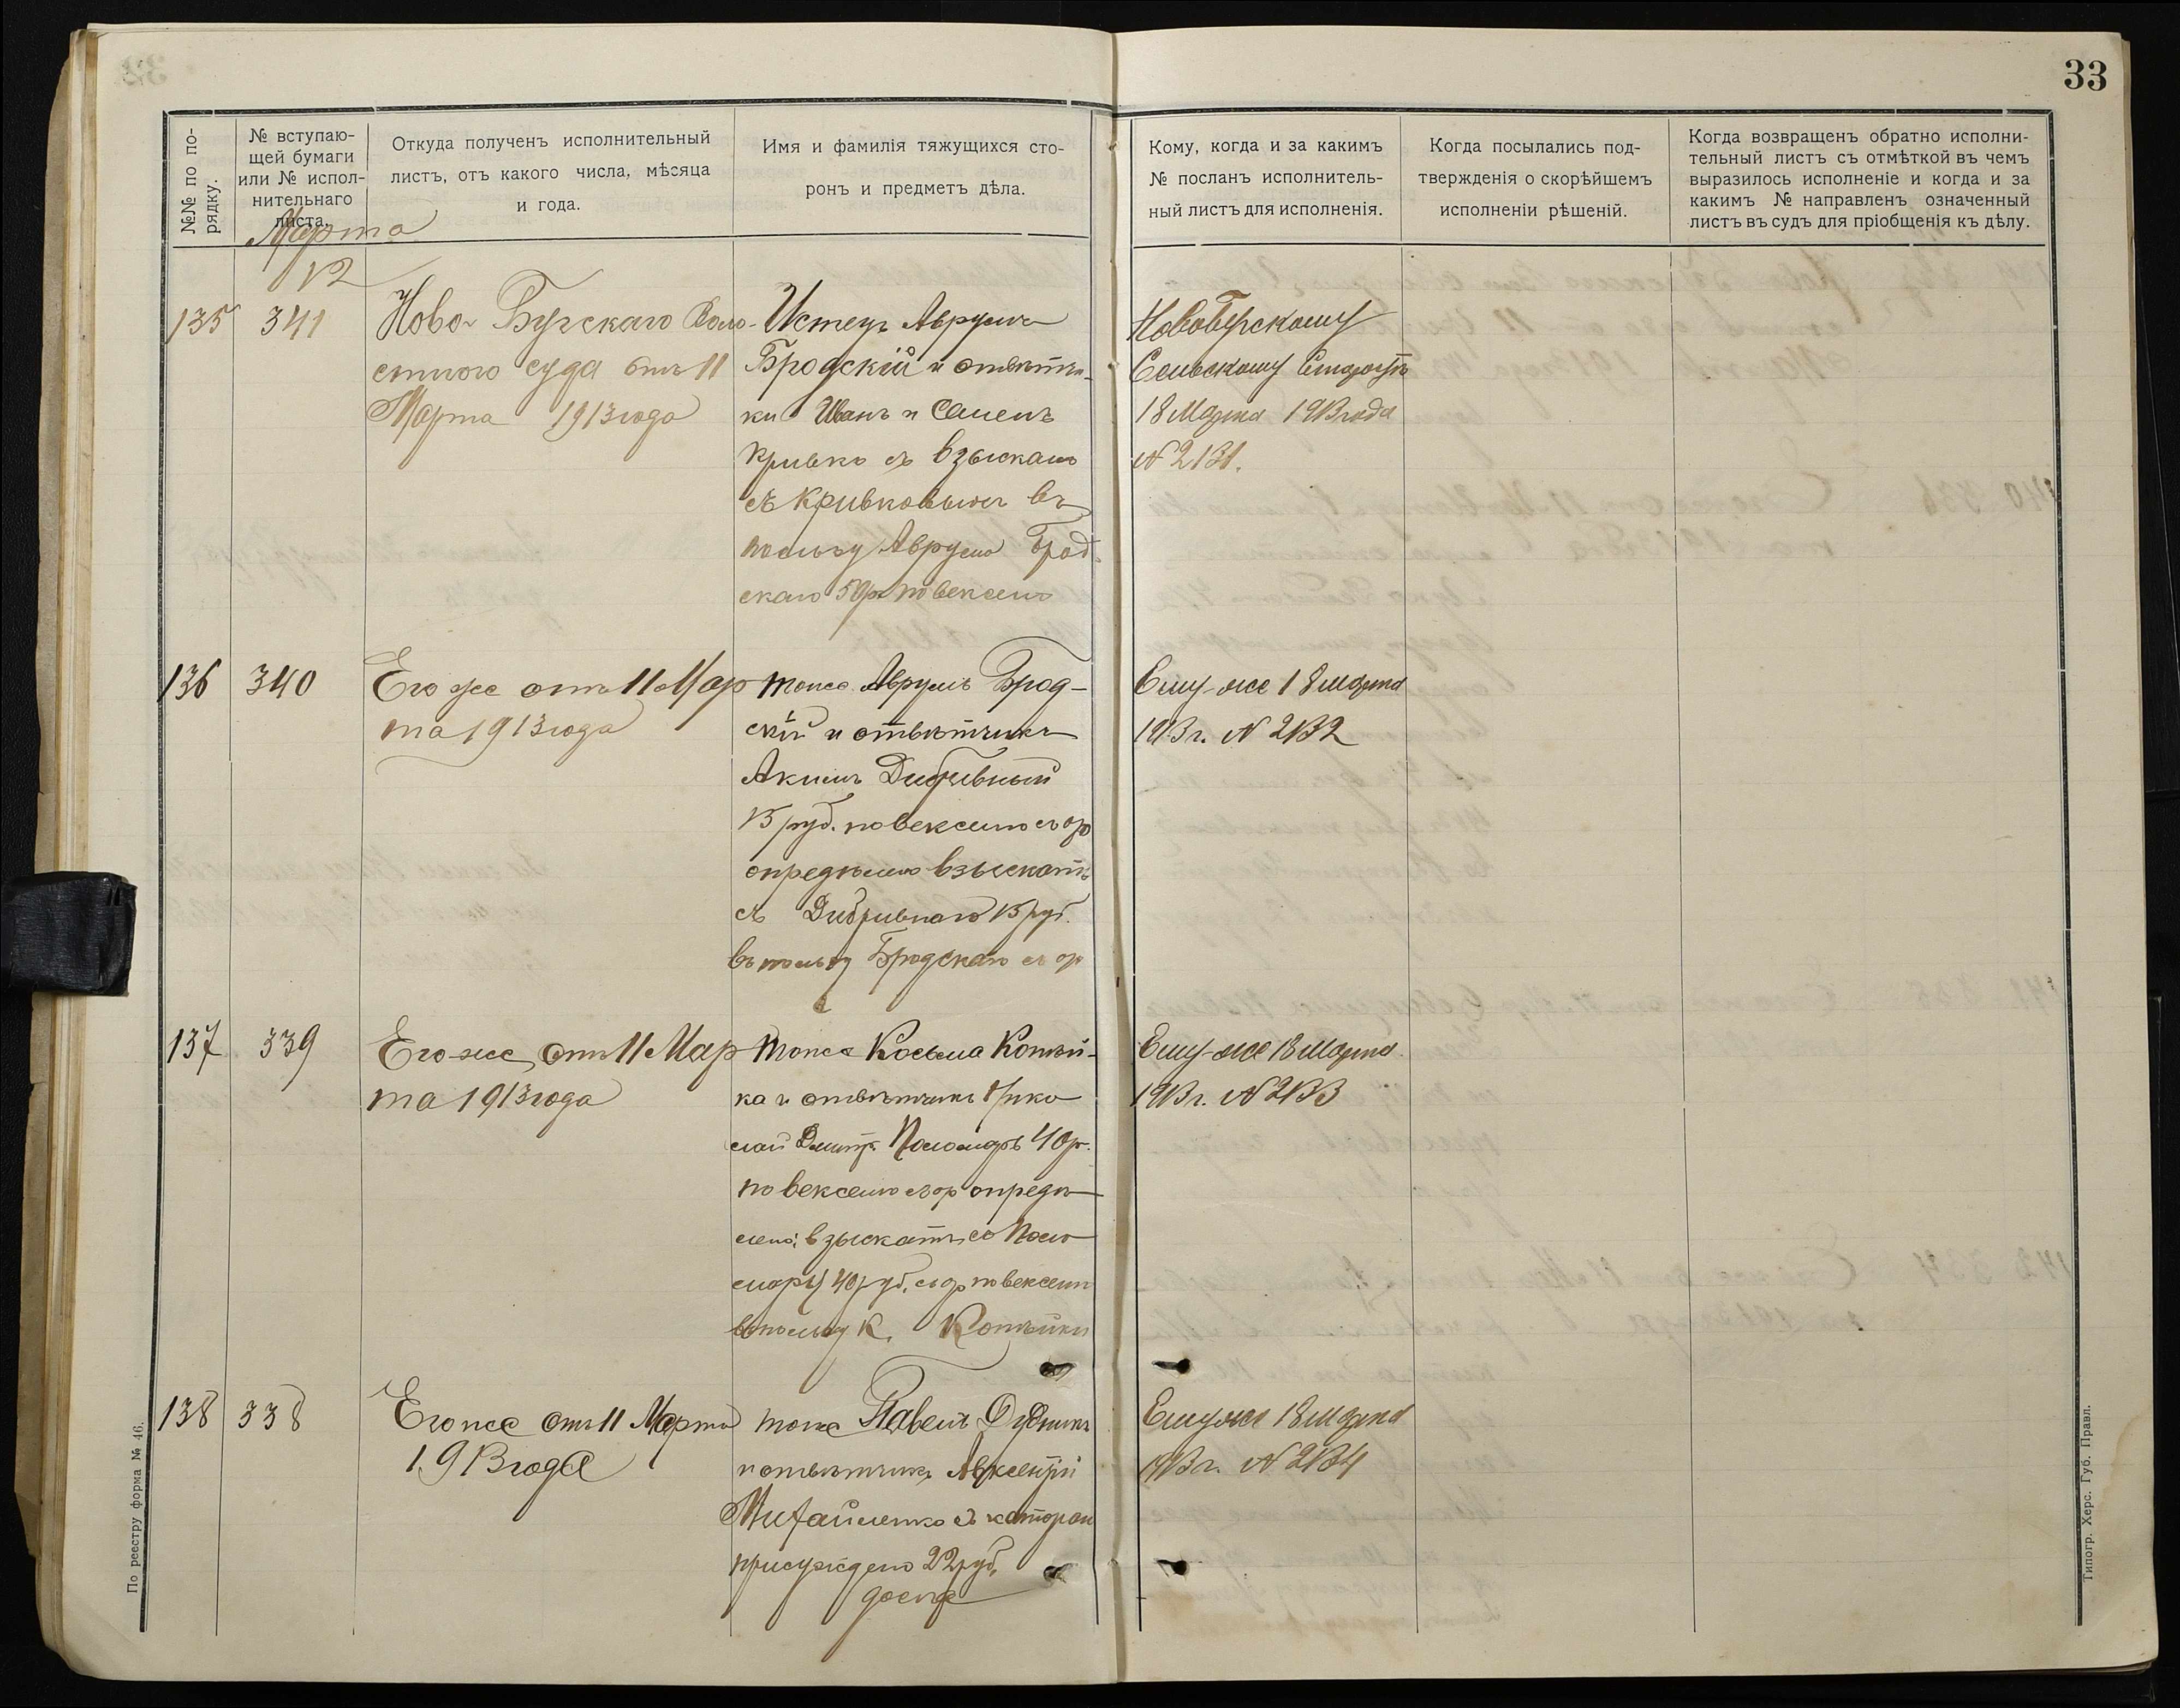 33
№№ по по-
рядку.
№ вступаю-
щей бумаги
или № испол-
нительнаго
листа.
Откуда полученъ исполнительный
листъ, отъ какого числа, мѣсяца
и года.
Имя и фамилія тяжущихся сто-
ронъ и предметъ дѣла.
Кому, когда и за какимъ
№ посланъ исполнитель-
ный листъ для исполненія.
Когда посылались под-
твержденія о скорѣйшемъ
исполненіи рѣшеній.
Когда возвращенъ обратно исполни-
тельный листъ съ отмѣткой въ чемъ
выразилось исполненіе и когда и за
какимъ № направленъ означенный
листъ въ судъ для пріобщенія къ дѣлу.
Марта
12
135
341
Ново-Бугскаго Воло-
стного суда отъ 11
Марта 1913 года
Истецъ Аврумъ
Бродскій и отвѣтчи-
ки Иванъ и Семенъ
Кривко съ взыскан
съ Кривковыхъ въ
пользу Аврума Брод-
скаго 50 р по векселю
Новобугскому
Сельскому Старостѣ
18 Марта 1913 года
№ 2131.
136
340
Его же отъ 11 Мар
та 1913 года
тоже Аврумъ Брод-
скій и отвѣтчикъ
Акимъ Дибривный
15 руб. по векселю съ
опредѣлено взыскать
съ Дибривнаго 15 руб.
въ пользу Бродскаго
Ему-же 18 марта
1913 г. № 2132
137
339
Его-же отъ 11 Мар
та 1913 года
тоже Косьма Копѣй-
ка и отвѣтчикъ Нико
лай Дмитр. 40 р.
по векселю опредѣ
лено: взыскать съ
40 руб. по векселю
въ пользу К. Копѣйки
Ему-же 18 марта
1913 г. № 2133
138
338
Его же отъ 11 Марта
1913 года
тоже Павелъ
и отвѣтчикъ Авксентій
Михайленко съ котораго
присуждено 22 руб.
Ему же 18 марта
1913 г. № 2134
По реестру форма № 46.
Типогр. Херс. Губ. Правл.